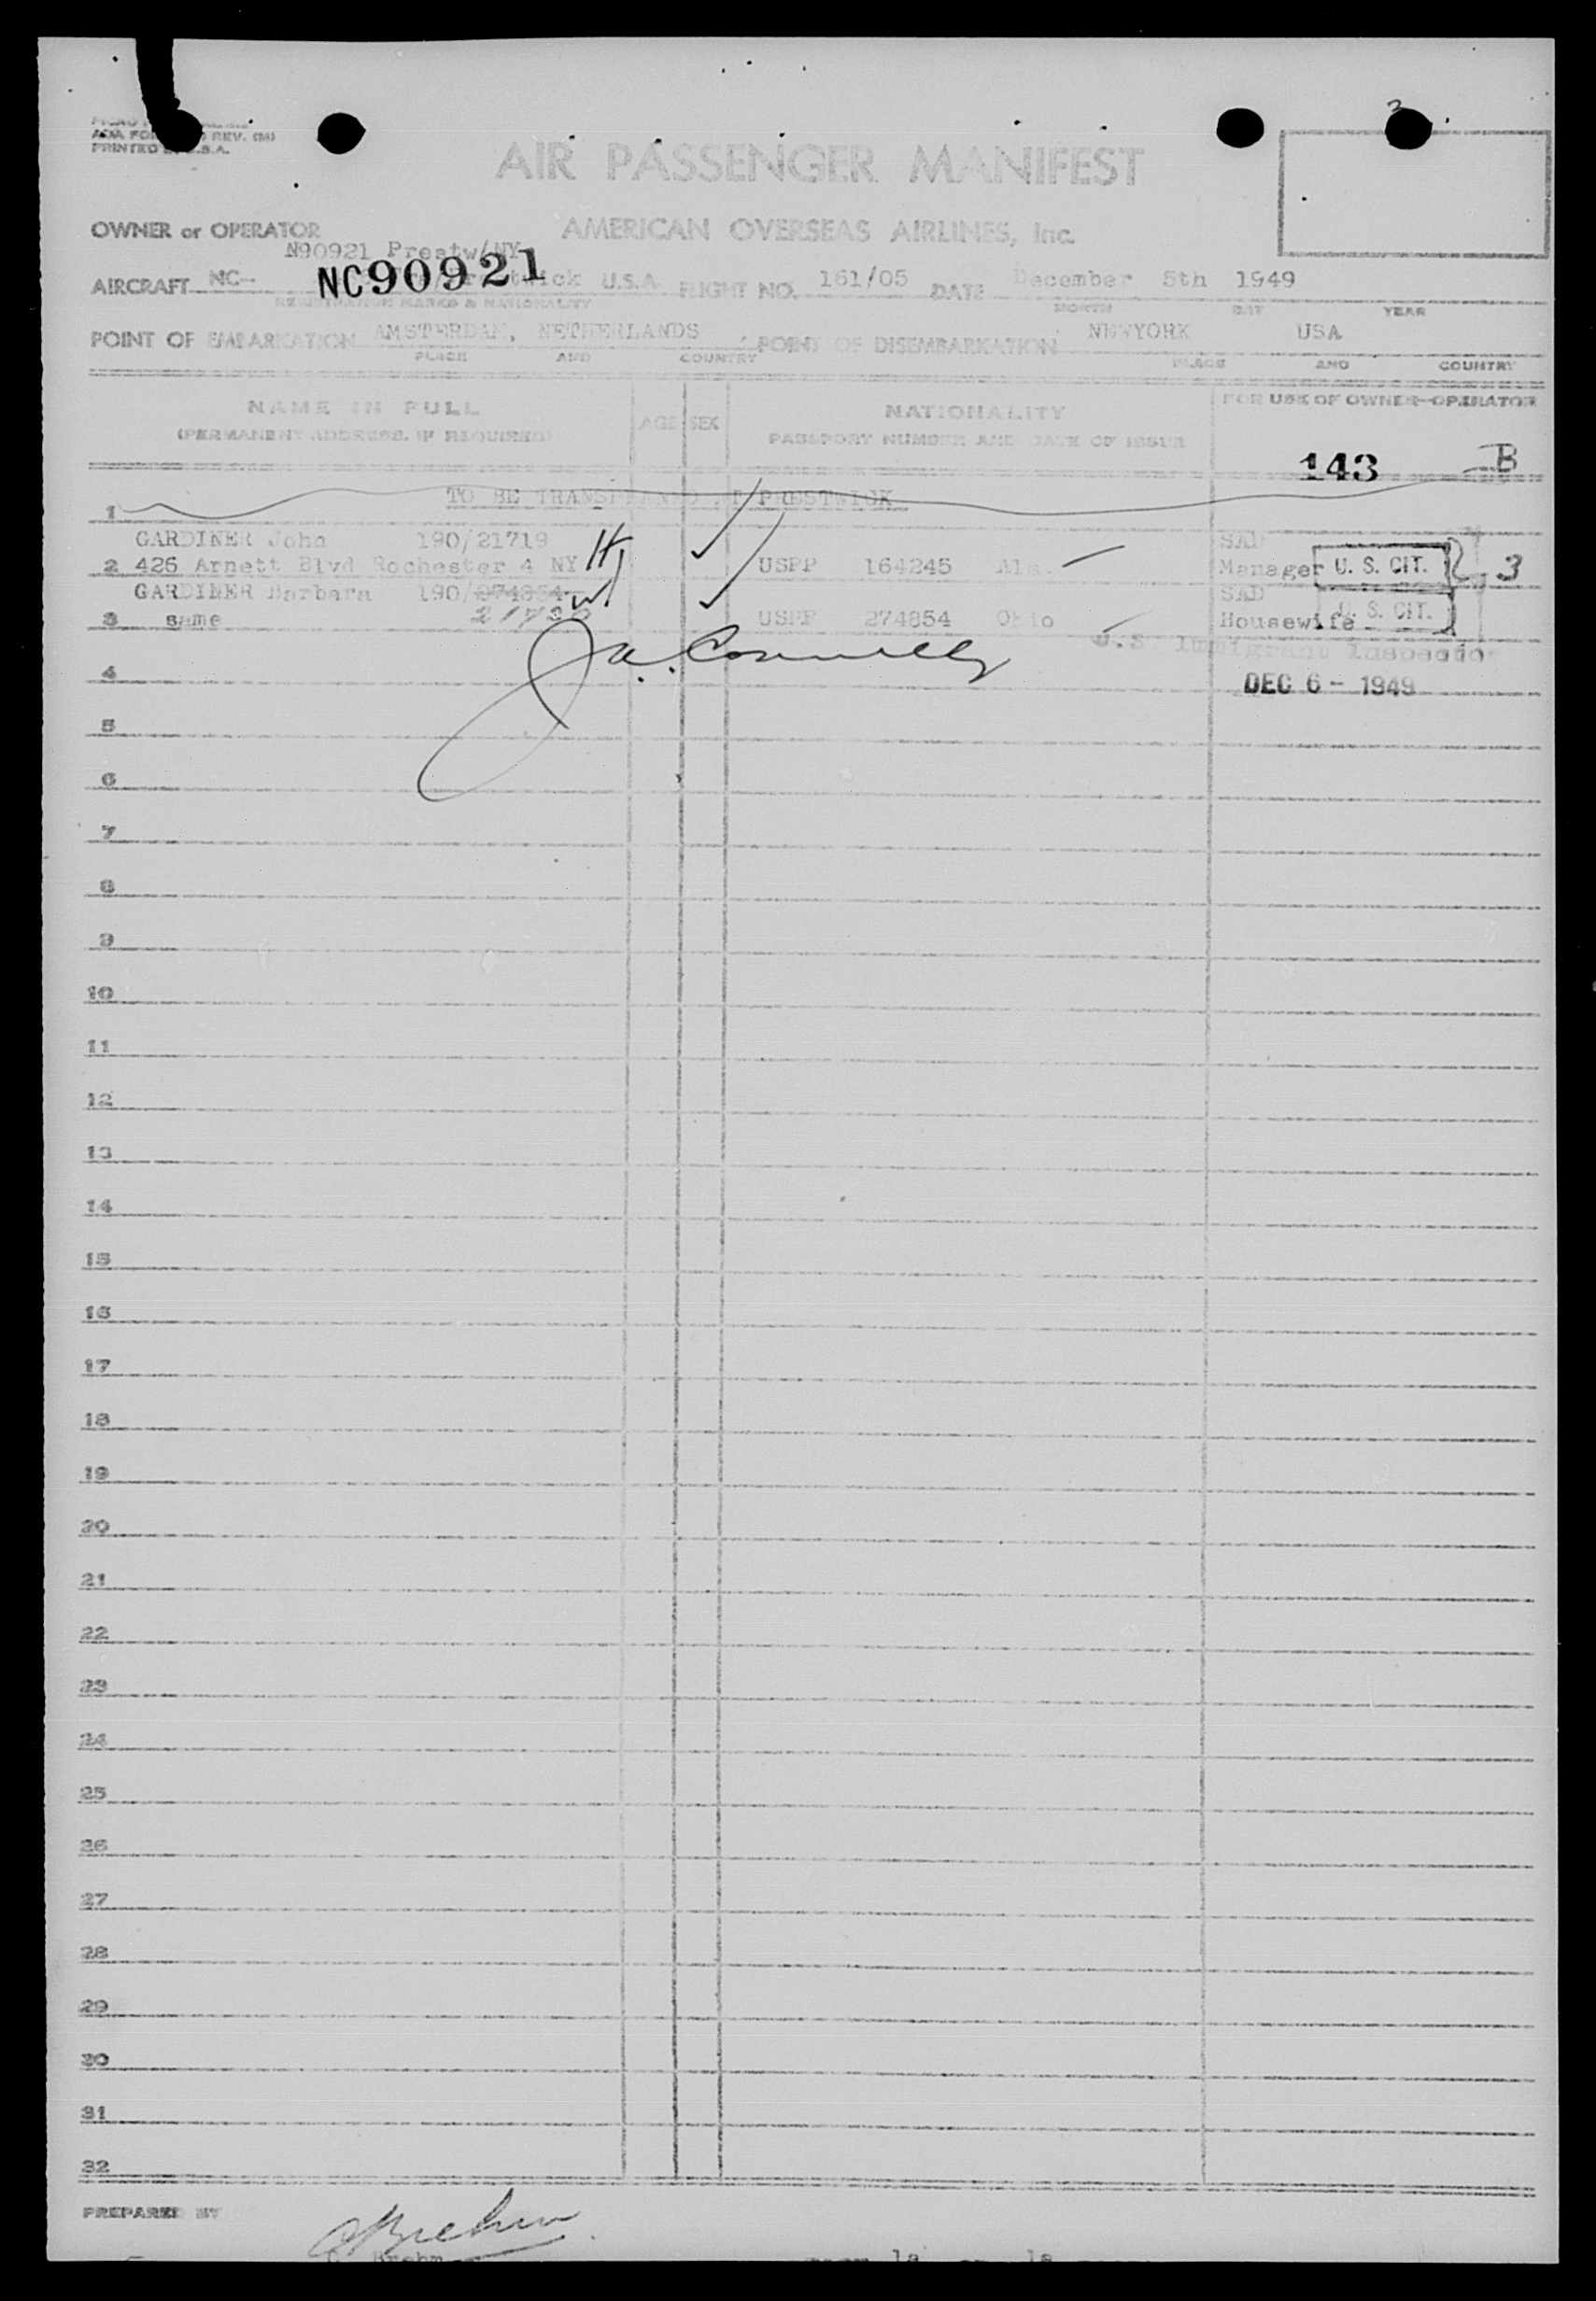 PRINTED U.S.A.
AIR PASSENGER MANIFEST
OWNER or OPERATOR
AMERICAN OVERSEAS AIRLINES, Inc.
N90921 Prestw/NY
AIRCRAFT NC- NC90921 U.S.A. FLIGHT NO. 161/05 DATE December 5th 1949
REGISTRATION MARKS & NATIONALITY MONTH DAY YEAR
POINT OF EMBARKATION AMSTERDAM, NETHERLANDS POINT OF DISEMBARKATION NEWYORK USA
PLACE AND COUNTRY PLACE AND COUNTRY
NAME IN FULL AGE SEX NATIONALITY FOR USE OF OWNER-OPERATOR
(PERMANENT ADDRESS, IF REQUIRED) PASSPORT NUMBER AND DATE OF ISSUE
143 B
1 TO BE TRANSPLANED AT PRESTWICK
GARDINER John 190/21719 SAD
2 426 Arnett Blvd Rochester 4 NY USPP 164245 Ala. Manager U. S. CIT. 3
GARDINER Barbara 190/274854 SAD
3 same 21720 USPP 274854 Ohio Housewife U. S. CIT.
J.A. Connelly U.S. Immigrant Inspector
4 DEC 6 - 1949
5
6
7
8
9
10
11
12
13
14
15
16
17
18
19
20
21
22
23
24
25
26
27
28
29
30
31
32
PREPARED BY
Brehm